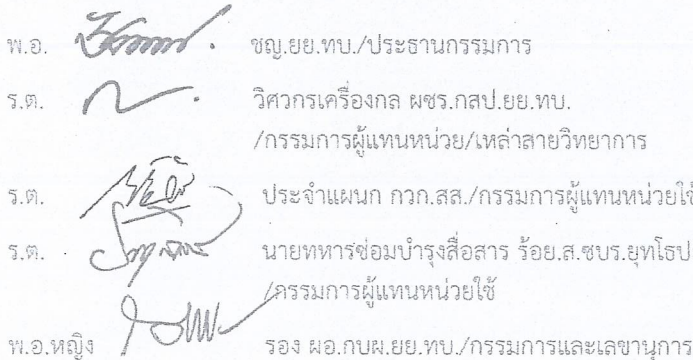 พ.อ. ชญ.ยย.ทบ./ประธานกรรมการ
ร.ต. วิศวกรเครื่องกล ผชร.กสป.ยย.ทบ.
/กรรมการผู้แทนหน่วย/เหล่าสายวิทยาการ
ร.ต. ประจำแผนก กวก.สส./กรรมการผู้แทนหน่วยใช้
ร.ต. นายทหารซ่อมบำรุงสื่อสาร ร้อย.ส.ซบร.ยุทโธป
/กรรมการผู้แทนหน่วยใช้
พ.อ.หญิง รอง ผอ.กบผ.ยย.ทบ./กรรมการและเลขานุการ